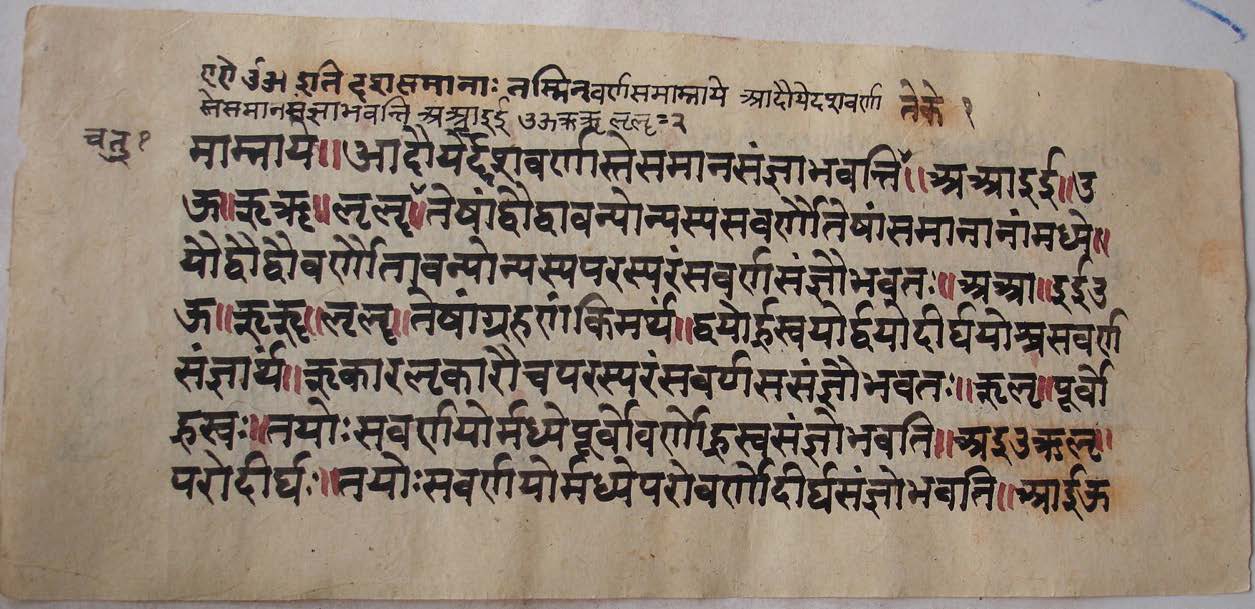 दशसमानाः तस्मिन्वर्णसमाम्नाये आदौयेदशवर्णा
स्तेसमानसंज्ञाभवन्ति अआइई उऊऋॠ ऌॡ=२
चतु १
माम्नाये॥आदौयेर्दशवर्णास्तेसमानसंज्ञाभवन्ति॥अआइई॥उ
ऊ॥ऋॠ॥ऌॡ॥तेषांद्वौद्वावन्योन्यस्यसवर्णौतेषांसमानानांमध्ये॥
यौद्वौद्वौवर्णौतावन्योन्यस्यपरस्परंसवर्णसंज्ञौभवतः॥अआ॥इईउ
ऊ॥ऋॠ॥ऌॡ॥तेषांग्रहणंकिमर्थं॥द्वयोर्ह्रस्वयोर्द्वयोदीर्घयोश्चसवर्ण
संज्ञार्थं॥ऋकारऌकारौचपरस्परंसवर्णससंज्ञौभवतः॥ऋऌ॥पूर्वो
ह्रस्वः॥तयोःसवर्णयोर्मध्येपूर्वोवर्णोह्रस्वसंज्ञोभवति॥अइउऋऌ॥
परोदीर्घः॥तयोःसवर्णयोर्मध्येपरोवर्णोदीर्घसंज्ञोभवति॥आईऊ